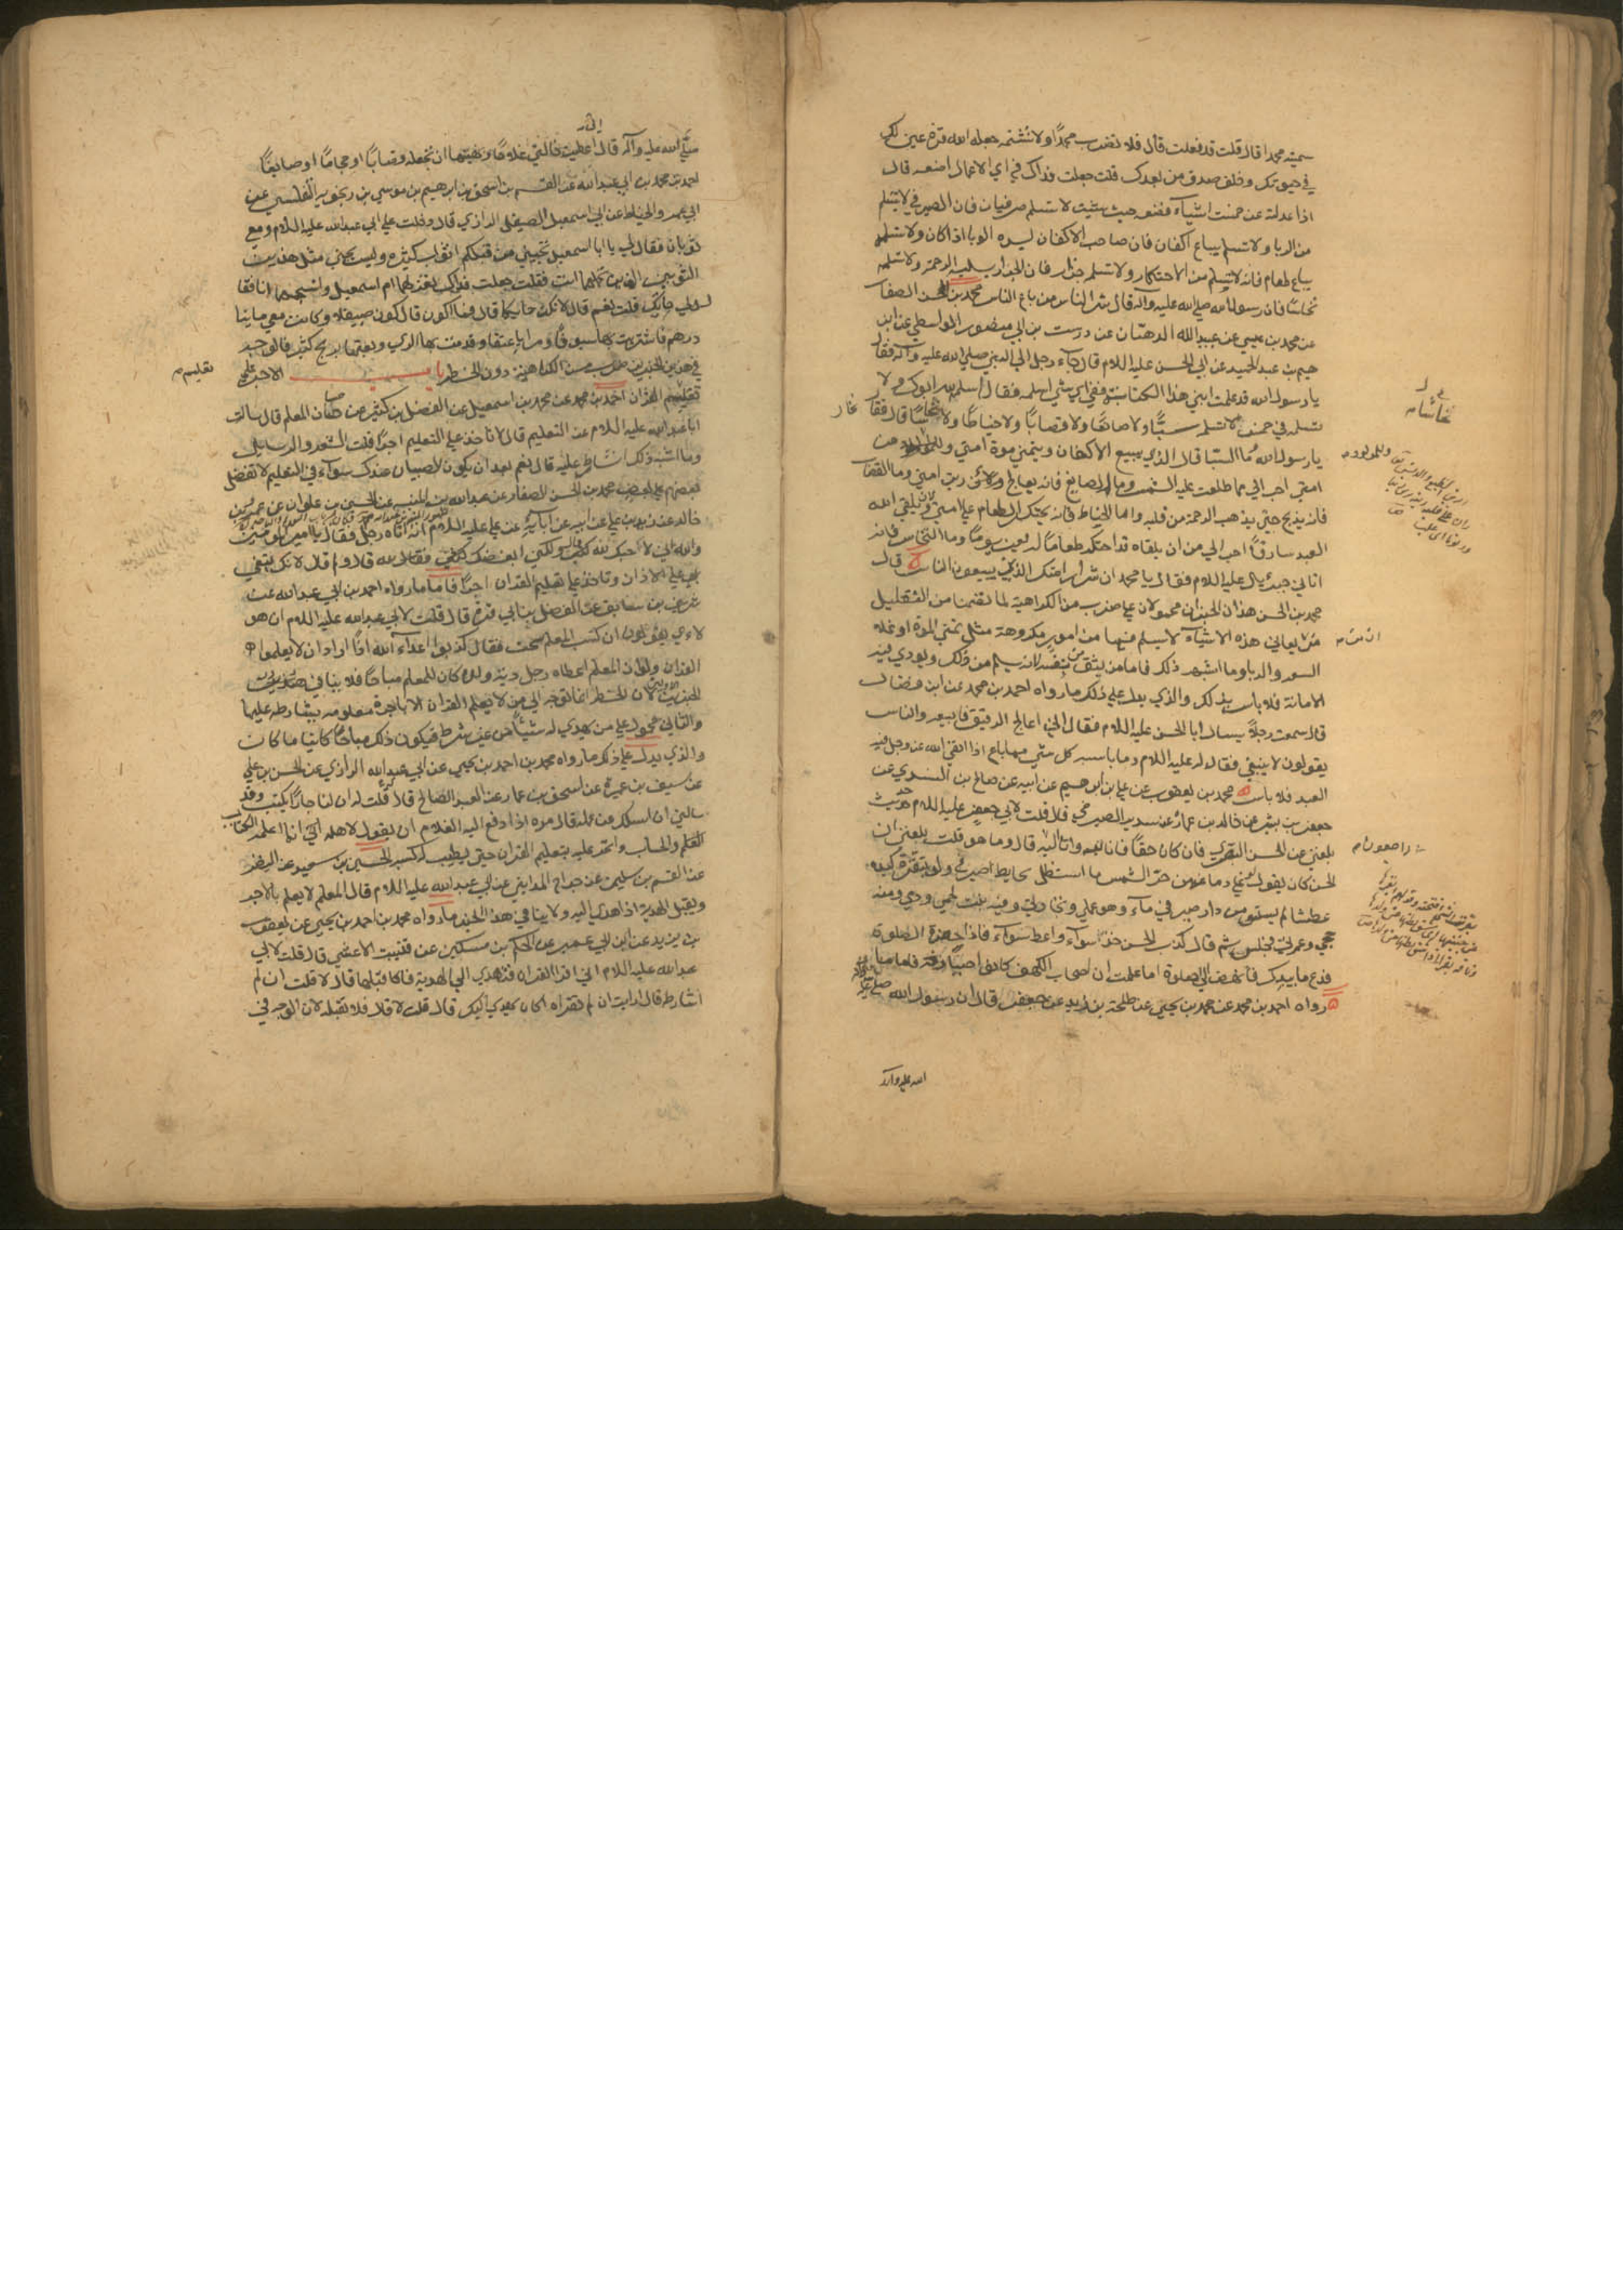 سميته محمدا قال قلت قد فعلت قال فلا تضرب محمدًا ولا تشتمه جعله الله قرة عين لك
في حيوتك وخلف صدق من بعدك قلت جعلت فداك في اي الاعمال اضعه قال
اذا عدلته عن خمسة اشياء فضعه حيث شئت لا تسلمه صرفيا فان الصيرفي لا يسلم
من الربا ولا تسلمه بياع اكفان فان صاحب الاكفان يسره الوبا اذا كان ولا تسلمه
بياع طعام فانه لا يسلم من الاحتكار ولا تسلمه جزار فان الجزار يسلب الرحمة ولا تسلمه
نخاسًا فان رسول الله صلى الله عليه وآله قال شر الناس من باع الناس محمد بن الحسن الصفار
عن محمد بن عيسى عن عبيد الله الدهقان عن درست بن ابي منصور الواسطي عن ابر
هيم بن عبد الحميد عن ابي الحسن عليه السلام قال جاء رجل الى النبي صلى الله عليه وآله فقال
يا رسول الله قد علمت ابني هذا الكتابة ففي اي شئ اسلمه فقال اسلمه لله ابوك ولا
تسلمه في خمس لا تسلمه سبّاءً ولا صائغًا ولا قصابًا ولا حناطًا ولا نخاسًا قال فقا
يا رسول الله ما السبا قال الذي يبيع الاكفان ويتمنى موت امتي وللمولود من
امتي احب الي مما طلعت عليه الشمس وما الصايغ فانه يعالج زين امتي واما القصاب
فانه يذبح حتى يذهب الرحمة من قلبه واما الحناط فانه يحتكر الطعام على امتي ولان يلقى الله
العبد سارقًا احب الي من ان يلقاه قد احتكر طعامًا اربعين يومًا وما النخاس فانه
اتاني جبرئيل عليه السلام فقال يا محمد ان شرار امتك الذين يبيعون الناس قال
محمد بن الحسن هذان الخبران محمولان على ضرب من الكراهية لما تضمنا من التعليل
من يعاني هذه الاشياء لا يسلم فيها من امور مكروهة مثل تمني الموت او غلاء
السعر والربا وما اشبه ذلك فاما من يثق من نفسه انه يسلم من ذلك ويؤدي فيه
الامانة فلا باس بذلك والذي يدل على ذلك ما رواه احمد بن محمد عن ابن فضال
قال سمعت رجلًا يسال ابا الحسن عليه السلام فقال اني اعالج الرقيق فابيعه والناس
يقولون لا ينبغي فقال له عليه السلام وما باسه كل شئ مما يباع اذا اتقى الله عز وجل فيه
العبد فلا باس محمد بن يعقوب عن علي بن ابرهيم عن ابيه عن صالح بن السندي عن
جعفر بن بشير عن خالد بن عمارة عن سدير الصيرفي قال قلت لابي جعفر عليه السلام حديث
بلغني عن الحسن البصري فان كان حقًا فانا لله وانا اليه قال وما هو قلت بلغني ان
الحسن كان يقول لو غلي دماغه من حر الشمس ما استظل بحايط صيرفي ولو تفرث كبده
عطشا لم يستسق من دار صيرفي ماء وهو عملي وتجارتي وفيه نبت لحمي ودمي ومنه
حجي وعمرتي فجلس ثم قال كذب الحسن خذ سواء واعط سواء فاذا حضرت الصلوة
فدع ما بيدك فانهض الى الصلوة اما علمت ان اصحاب الكهف كانوا صيارفة فاما ما
رواه احمد بن محمد عن محمد بن يحيى عن طلحة بن زيد عن جعفر قال ان رسول الله صلى
الله عليه وآله
صلى الله عليه وآله قال اني اعطيت خالتي غلامًا ونهيتها ان تجعله قصابًا او حجامًا او صايغًا
احمد بن محمد بن ابي عبد الله عن القسم بن اسحق بن ابرهيم بن موسى بن زنجويه التفليسي عن
ابي عمر والحناط عن ابي اسمعيل الصيقل الرازي قال دخلت على ابي عبد الله عليه السلام ومعي
ثوبان فقال لي يا ابا اسمعيل تجيئني من قبلكم اثواب كثيرة وليس يجيئني مثل هذين
الثوبين الذين تحملهما انت فقلت جعلت فداك تغزلهما ام اسمعيل وانسجهما انا فقا
ل لي حائك قلت نعم قال لا تكن حايكا قال فما اكون قال كن صيقلا وكانت معي مايتا
درهم فاشتريت بها سيوفًا ومرايا عتقا وقدمت بها الري وبعتها بربح كثير فالوجه
في هذين الخبرين ضرب من الكراهية دون الحظر باب الاجر على
تعليم القران احمد بن محمد عن محمد بن اسمعيل عن الفضل بن كثير عن حسان المعلم قال سالت
ابا عبد الله عليه السلام عن التعليم قال لا تاخذ على التعليم اجرًا قلت الشعر والرسايل
وما اشبه ذلك اشارط عليه قال نعم بعد ان يكون الصبيان عندك سواء في التعليم لا تفضل
بعضهم على بعض محمد بن الحسن الصفار عن عبد الله بن المنبه عن الحسين بن علوان عن عمرو بن
خالد عن زيد بن علي عن ابيه عن آبائه عن علي عليه السلام انه اتاه رجل فقال يا امير المؤمنين
والله اني لاحبك لله فقال له ولكني ابغضك لله قال ولم قال لانك تبغي
على الاذان وتاخذ على تعليم القران اجرًا فاما ما رواه احمد بن ابي عبد الله عن
شريف بن سابق عن الفضل بن ابي قرة قال قلت لابي عبد الله عليه السلام ان هو
لاء يقولون ان كسب المعلم سحت فقال كذبوا اعداء الله انما ارادوا ان لا يعلموا
القران ولو ان المعلم اعطاه رجل دية ولده كان للمعلم مباحًا فلا ينافي هذا
الخبرين الاولين لان الحظر انما توجه الى من لا يعلم القران الا باجرة معلومة يشارطه عليها
والثاني محمول على من يهدي له شئ من غير شرط فيكون ذلك مباحًا كاينا ما كان
والذي يدل على ذلك ما رواه محمد بن احمد بن يحيى عن ابي عبد الله الرازي عن الحسن بن علي
عن سيف بن عميرة عن اسحق بن عمار عن العبد الصالح قال قلت له ان لنا جارًا يكتب وقد
سالني ان اسئلك عن عمله قال مره اذا دفع اليه الغلام ان يقول لاهله اني انما اعلمه الكتاب
والحساب واتجر عليه بتعليم القران حتى يطيب له كسبه الحسين بن سعيد عن النضر
عن القسم بن سليمن عن جراح المدايني عن ابي عبد الله عليه السلام قال المعلم لا يعلم بالاجر
ويقبل الهدية اذا اهدي اليه ولا ينافي هذا الخبر ما رواه محمد بن احمد بن يحيى عن يعقوب
بن يزيد عن ابن ابي عمير عن الحكم بن مسكين عن قتيبة الاعشى قال قلت لابي
عبد الله عليه السلام اني اقرا القران فتهدى الي الهدية فاقبلها قال لا قلت ان لم
اشارطه قال ارايت ان لم تقراه اكان يهدى اليك قال قلت لا قال فلا تقبله لان الوجه في